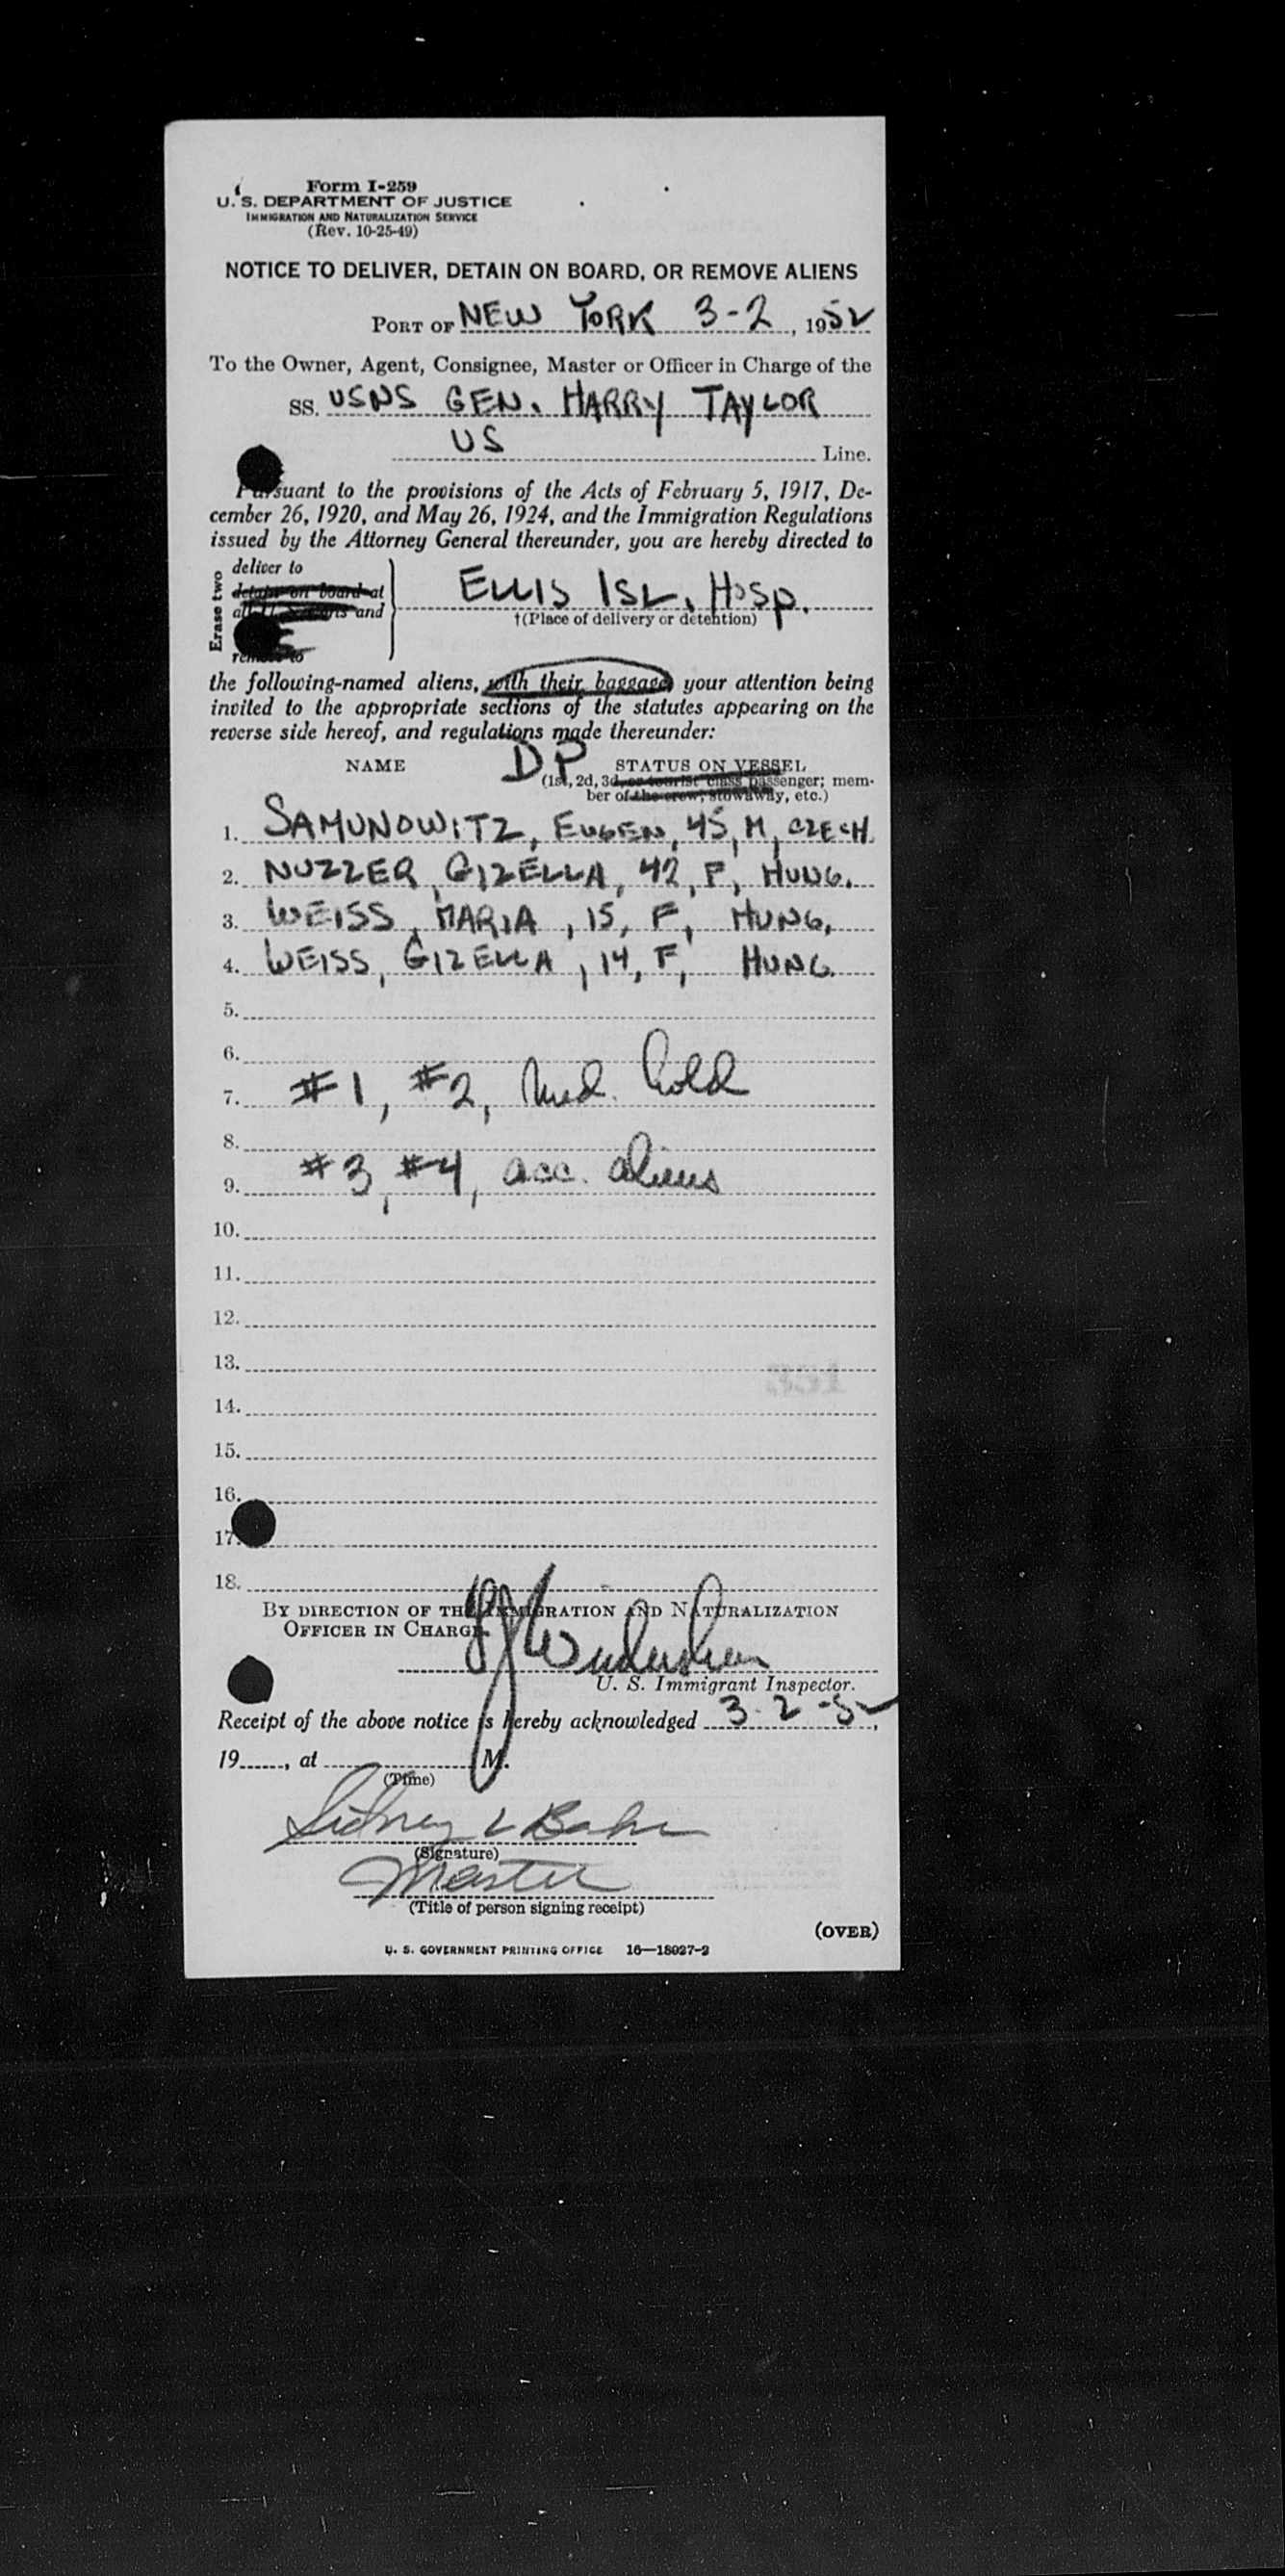 Form I-259
U. S. DEPARTMENT OF JUSTICE
IMMIGRATION AND NATURALIZATION SERVICE
(Rev. 10-25-49)
NOTICE TO DELIVER, DETAIN ON BOARD, OR REMOVE ALIENS
PORT OF NEW YORK 3-2, 1952
To the Owner, Agent, Consignee, Master or Officer in Charge of the
SS. USNS GEN. HARRY TAYLOR
US Line.
Pursuant to the provisions of the Acts of February 5, 1917, De-
cember 26, 1920, and May 26, 1924, and the Immigration Regulations
issued by the Attorney General thereunder, you are hereby directed to
Erase two
deliver to
detain on board at
and
remove to
ELLIS ISL. HOSP.
†(Place of delivery or detention)
the following-named aliens, with their baggage, your attention being
invited to the appropriate sections of the statutes appearing on the
reverse side hereof, and regulations made thereunder:
NAME DP STATUS ON VESSEL
(1st, 2d, 3d, or tourist class passenger; mem-
ber of the crew, stowaway, etc.)
1. SAMUNOWITZ, EUGEN, 45, M, CZECH.
2. NUZZER, GIZELLA, 42, F, HUNG.
3. WEISS, MARIA, 15, F, HUNG.
4. WEISS, GIZELLA, 14, F, HUNG.
5.
6.
7. #1, #2, Med. hold
8.
9. #3, #4, acc. aliens
10.
11.
12.
13.
14.
15.
16.
17.
18.
BY DIRECTION OF THE IMMIGRATION AND NATURALIZATION
OFFICER IN CHARGE.
U. S. Immigrant Inspector.
Receipt of the above notice is hereby acknowledged 3-2-52,
19......, at M.
(Time)
Sidney L
(Signature)
Master
(Title of person signing receipt)
(OVER)
U. S. GOVERNMENT PRINTING OFFICE 16—18027-2